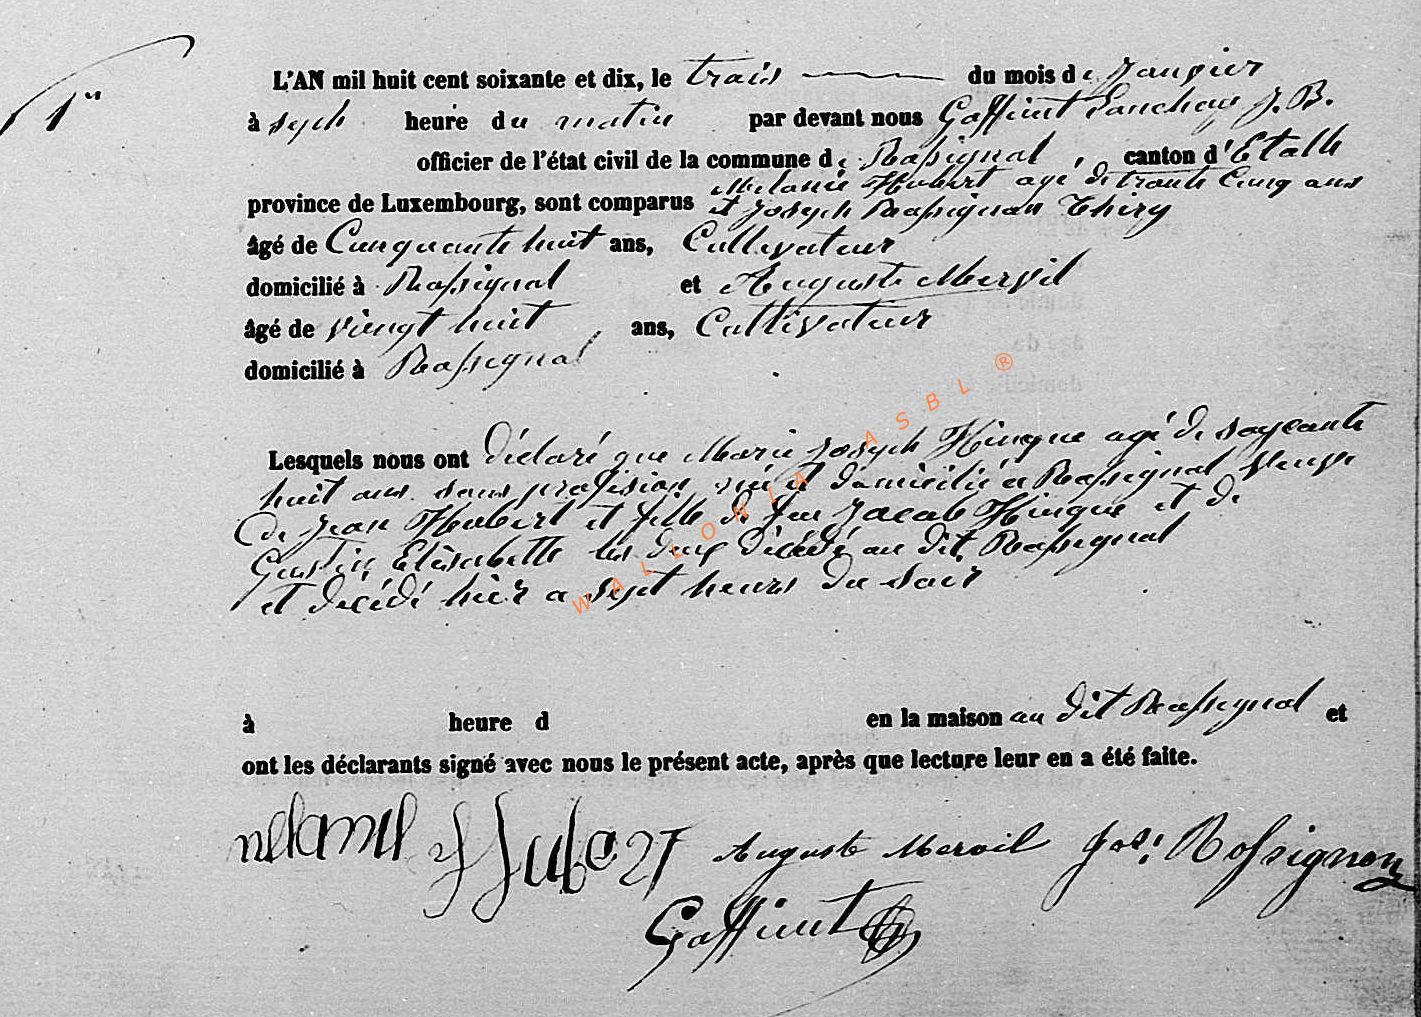 1er
L'AN mil huit cent soixante et dix, le trois du mois de Janvier
à heure du matin par devant nous Goffinet J. B.
officier de l'état civil de la commune de Rossignol, canton d'Etalle
province de Luxembourg, sont comparus Melanie Hubert agé de trente Cinq ans
et Joseph Rossignon Thiry
âgé de Cinquante huit ans, Cultivateur
domicilié à Rossignol et Auguste Mervil
âgé de vingt huit ans, Cultivateur
domicilié à Rossignol
Lesquels nous ont déclaré que Marie Joseph Hinque agé de soyçante
huit ans sans profision né et domicilié a Rossignol Veuve
De Jean Hubert et fille de feu Jacob Hinque et de
Gustin Elisabette les deux décédé au dit Rossignol
et décédé hièr a sept heurs du soir
à heure d en la maison au dit Rossignol et
ont les déclarants signé avec nous le présent acte, après que lecture leur en a été faite.
Auguste Mervil Jos: Rossignon
Goffinet
WALLONIA ASBL ®